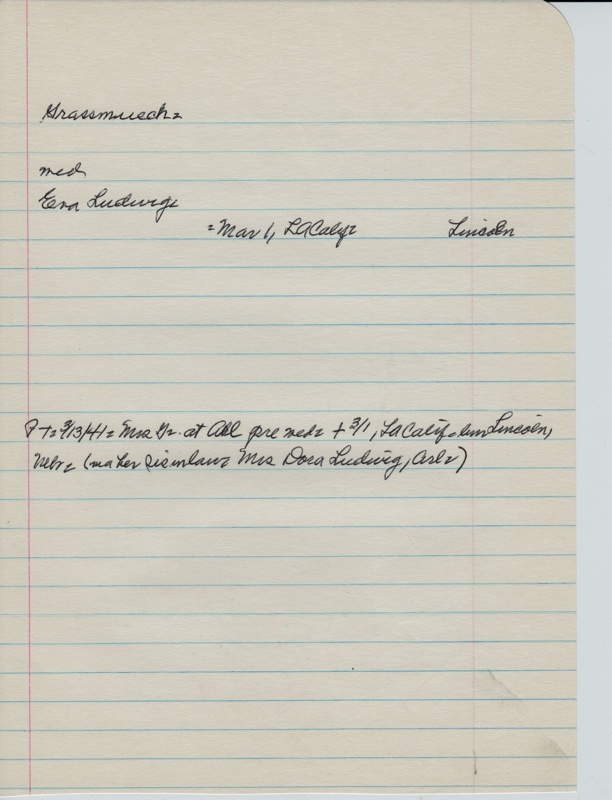 Grassmusch=
med
Eva Ludwig=
= Mar 1, LA Calif= Lincoln
P+= 3/13/41= Mrs Gr. at Abl pre med= + 3/1, LA Calif= Lincoln,
Nebr= (ma her sisinlaw= Mrs Dora Ludwig, Arl=)